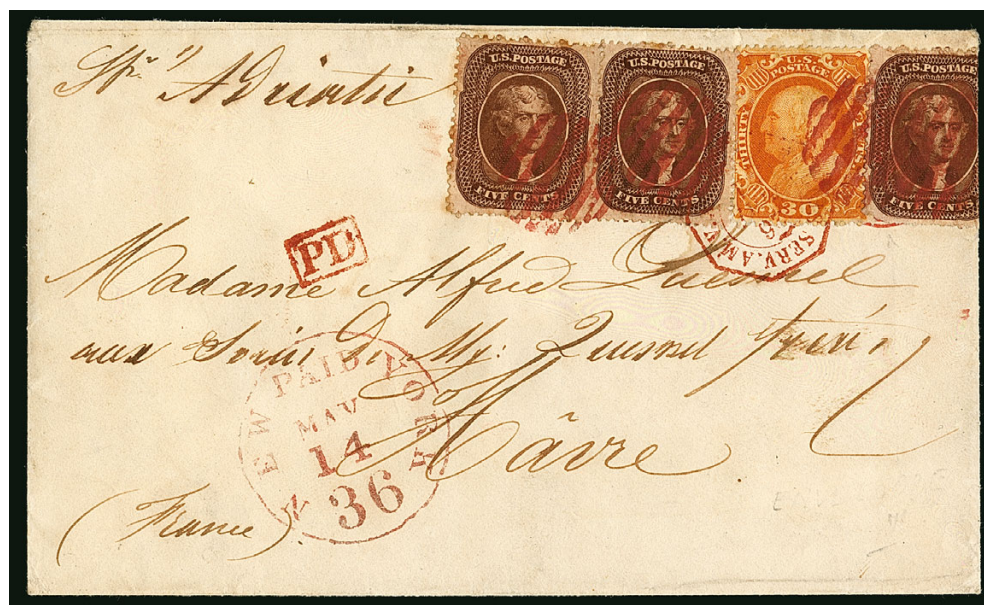 Str " Adriatic
U.S. POSTAGE
FIVE CENTS
U.S. POSTAGE
FIVE CENTS
U.S. POSTAGE
THIRTY CENTS
30
U.S. POSTAGE
FIVE CENTS
PD
SERV. AM.
Madame Alfred Quesnel
aux Soins de Mr: Quesnel frères
Hâvre
(France)
NEW PAID YORK
MAY
14
36